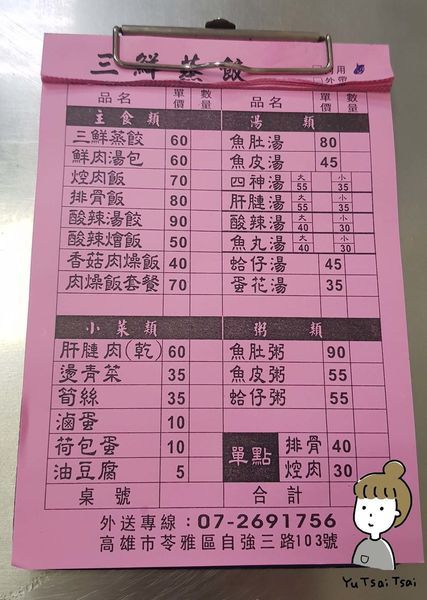 三鮮蒸餃
內用
外帶
品名 單價 數量 品名 單價 數量
主食類 湯類
三鮮蒸餃 60 魚肚湯 80
鮮肉湯包 60 魚皮湯 45
焢肉飯 70 四神湯 大55 小35
排骨飯 80 肝腱湯 大55 小35
酸辣湯餃 90 酸辣湯 大40 小30
酸辣燴飯 50 魚丸湯 大40 小30
香菇肉燥飯 40 蛤仔湯 45
肉燥飯套餐 70 蛋花湯 35
小菜類 粥類
肝腱肉(乾) 60 魚肚粥 90
燙青菜 35 魚皮粥 55
筍絲 35 蛤仔粥 55
滷蛋 10
荷包蛋 10 單點 排骨 40
油豆腐 5 焢肉 30
桌號 合計
外送專線：07-2691756
高雄市苓雅區自強三路103號
Yu Tsai Tsai